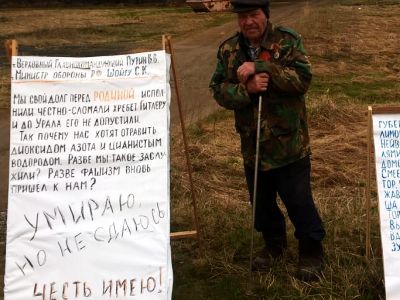 Верховный Главнокомандующий Путин В.В.
Министр обороны РФ Шойгу С.К.
Мы свой долг перед РОДИНОЙ испол-
нили честно-сломали хребет Гитлеру
и до Урала его не допустили.
Так почему нас хотят отравить
диоксидом азота и цианистым
водородом. Разве мы такое заслу-
жили? Разве фашизм вновь
пришел к нам?
УМИРАЮ,
НО НЕ СДАЮСЬ
ЧЕСТЬ ИМЕЮ!
ГУБЕР